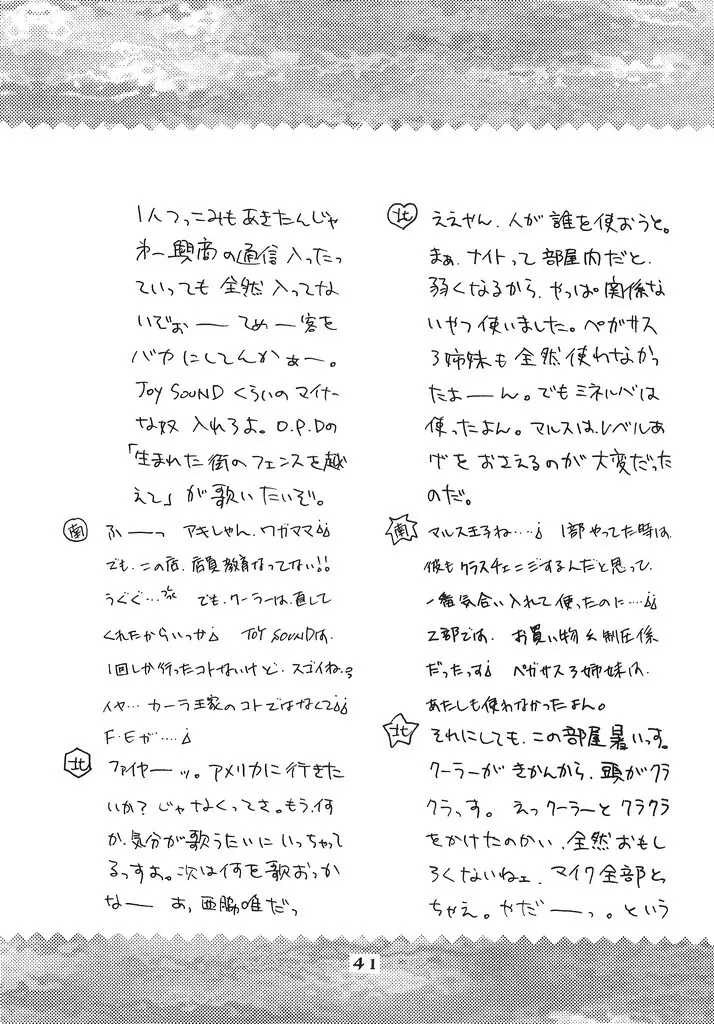 北 ええやん、人が誰を使おうと。
まぁ、ナイトって部屋内だと、
弱くなるから、やっぱ関係な
いやつ使いました。ペガサス
3姉妹も全然使わなかっ
たよーん。でもミネルバは
使ったよん。マルスは、レベルあ
げをおさえるのが大変だった
のだ。
南 マルス王子ね‥‥¡ 1部やってた時は、
彼もクラスチェンジするんだと思って、
一番気合い入れて使ったのに‥‥¡¡
2部では、お買い物&制圧係
だったっす¡ ペガサス3姉妹は、
あたしも使わなかったよん。
北 それにしても、この部屋暑いっす。
クーラーがきかんから、頭がクラ
クラっす。えっクーラーとクラクラ
をかけたのかい、全然おもし
ろくないねェ、マイク全部とっ
ちゃえ。やだーっ。という
1人つっこみもあきたんじゃ
わー興商の通信入ったっ
ていっても全然入ってな
いでぉーてめー客を
バカにしてんかぁー。
JOY SOUNDくらいのマイナー
な奴入れろよ。O.P.Dの
「生まれた街のフェンスを越
えて」が歌いたいぞ。
南 ふーっ アキしゃん、ワガママ¡¡
でも、この店、店員教育なってない!!
うぐぐ… でも、クーラーは、直して
くれたからいっか¡ JOY SOUNDは、
1回しか行ったコトないけど、スゴイね。
イヤ… カーラ王家のコトではなくて¡¡
F・Eが‥‥¡
北 ファイヤーッ。アメリカに行きた
いか?じゃなくってさ。もう、何
か、気分が歌うたいにいっちゃって
るっすよ。次は何を歌おっか
なー あ、西脇唯だっ
41